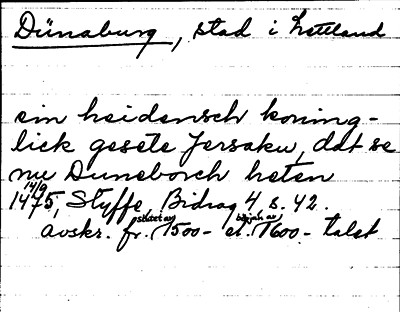 Dünaburg, stad i Lettland
ein heidensch koning-
lick gesete Jersaku, dat se
nu Duneborch heten
14/9
1475, Styffe, Bidrag 4 s. 42.
slutet av början av
avskr. fr. 1500- el. 1600-talet